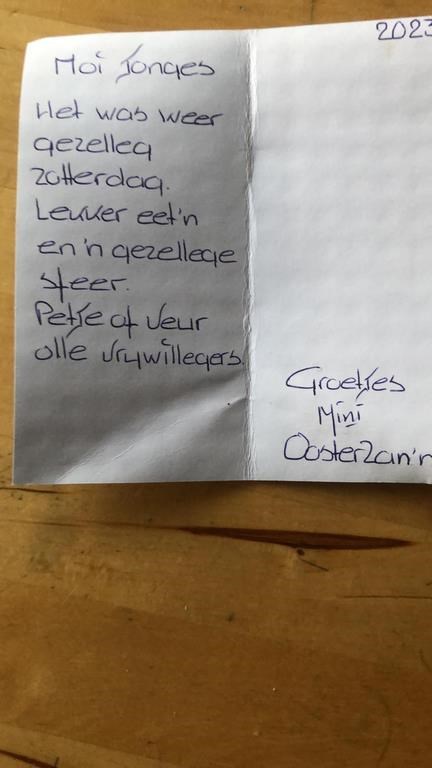 2023
Moi Jonges
Het was weer
gezelleg
zotterdag.
Lekker eet'n
en 'n gezellege
sfeer.
Petje of veur
olle vrywillegers.
Groetjes
Mini
Oosterlan'n